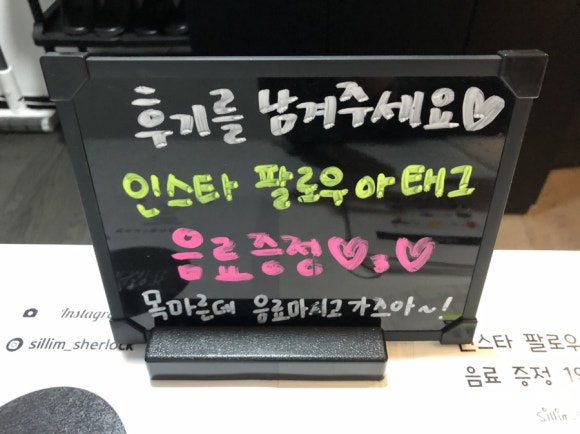 후기를 남겨주세요♡
인스타 팔로우 아 태그
음료증정♡3♡
목마른데 음료마시고 가즈아~!
Instagr
sillim_sherlock
인스타 팔로우
음료 증정 1
Sillim